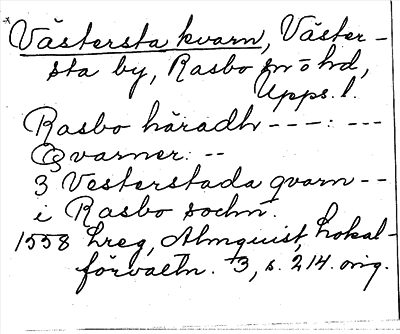 Västersta kvarn, Väster-
sta by, Rasbo sn o hd,
Upps. l.
Rasbo häradh ---: ---
Qvarner: --
3 Vesterstada qvarn --
i Rasbo sochn.
1558 Lreg, Almquist, Lokal-
förvaltn. 3, s. 214. orig.